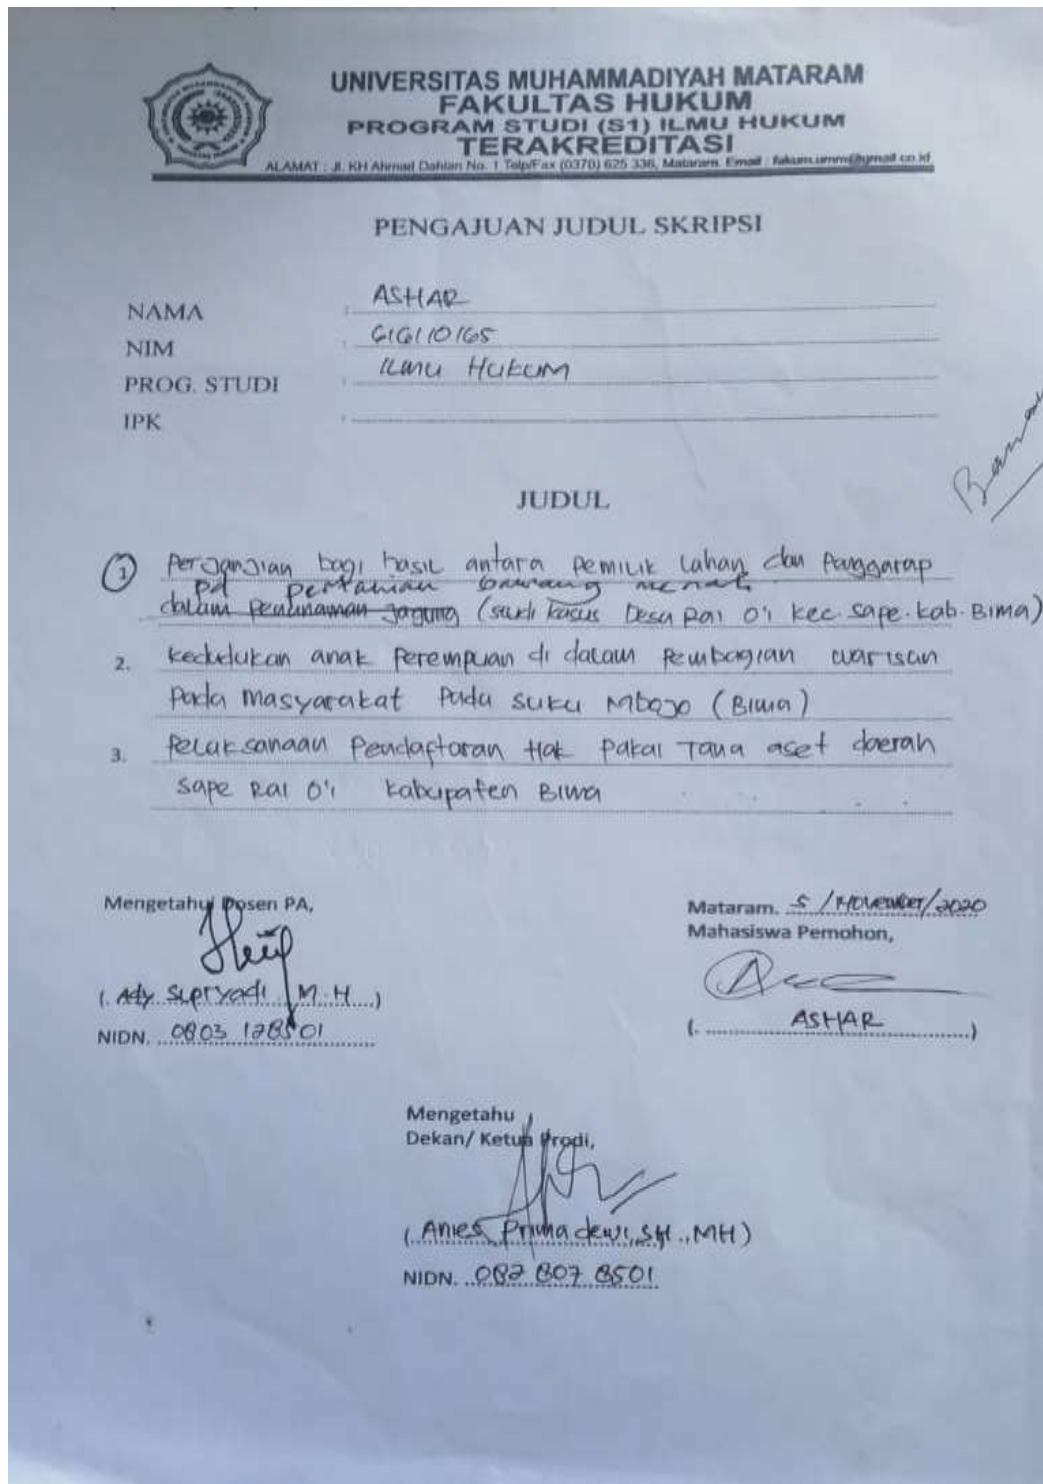 UNIVERSITAS MUHAMMADIYAH MATARAM
FAKULTAS HUKUM
PROGRAM STUDI (S1) ILMU HUKUM
TERAKREDITASI
ALAMAT : Jl. KH Ahmad Dahlan No. 1 Telp/Fax (0370) 625 336, Mataram. Email : fakum.umm@gmail.co.id
PENGAJUAN JUDUL SKRIPSI
NAMA : ASHAR
NIM : 616110165
PROG. STUDI : ILMU HUKUM
IPK :
JUDUL
1 Perjanjian bagi hasil antara Pemilik Lahan dan Panggarap
pd pertanian bawang merah
dalam Penanaman Jagung (studi kasus Desa Rai O'i Kec. Sape. Kab. Bima)
2. Kedudukan anak Perempuan di dalam Pembagian warisan
Pada Masyarakat Pada suku Mbojo (Bima)
3. Pelaksanaan Pendaftaran Hak Pakai Tana aset daerah
Sape Rai O'i Kabupaten Bima
Mengetahui Dosen PA,
(. Ady Supryadi M.H )
NIDN. 0803128501
Mataram. 5 /November/2020
Mahasiswa Pemohon,
(. ASHAR )
Mengetahu
Dekan/ Ketua Prodi,
( Anies Prima dewi, SH., MH)
NIDN. 082 807 8501